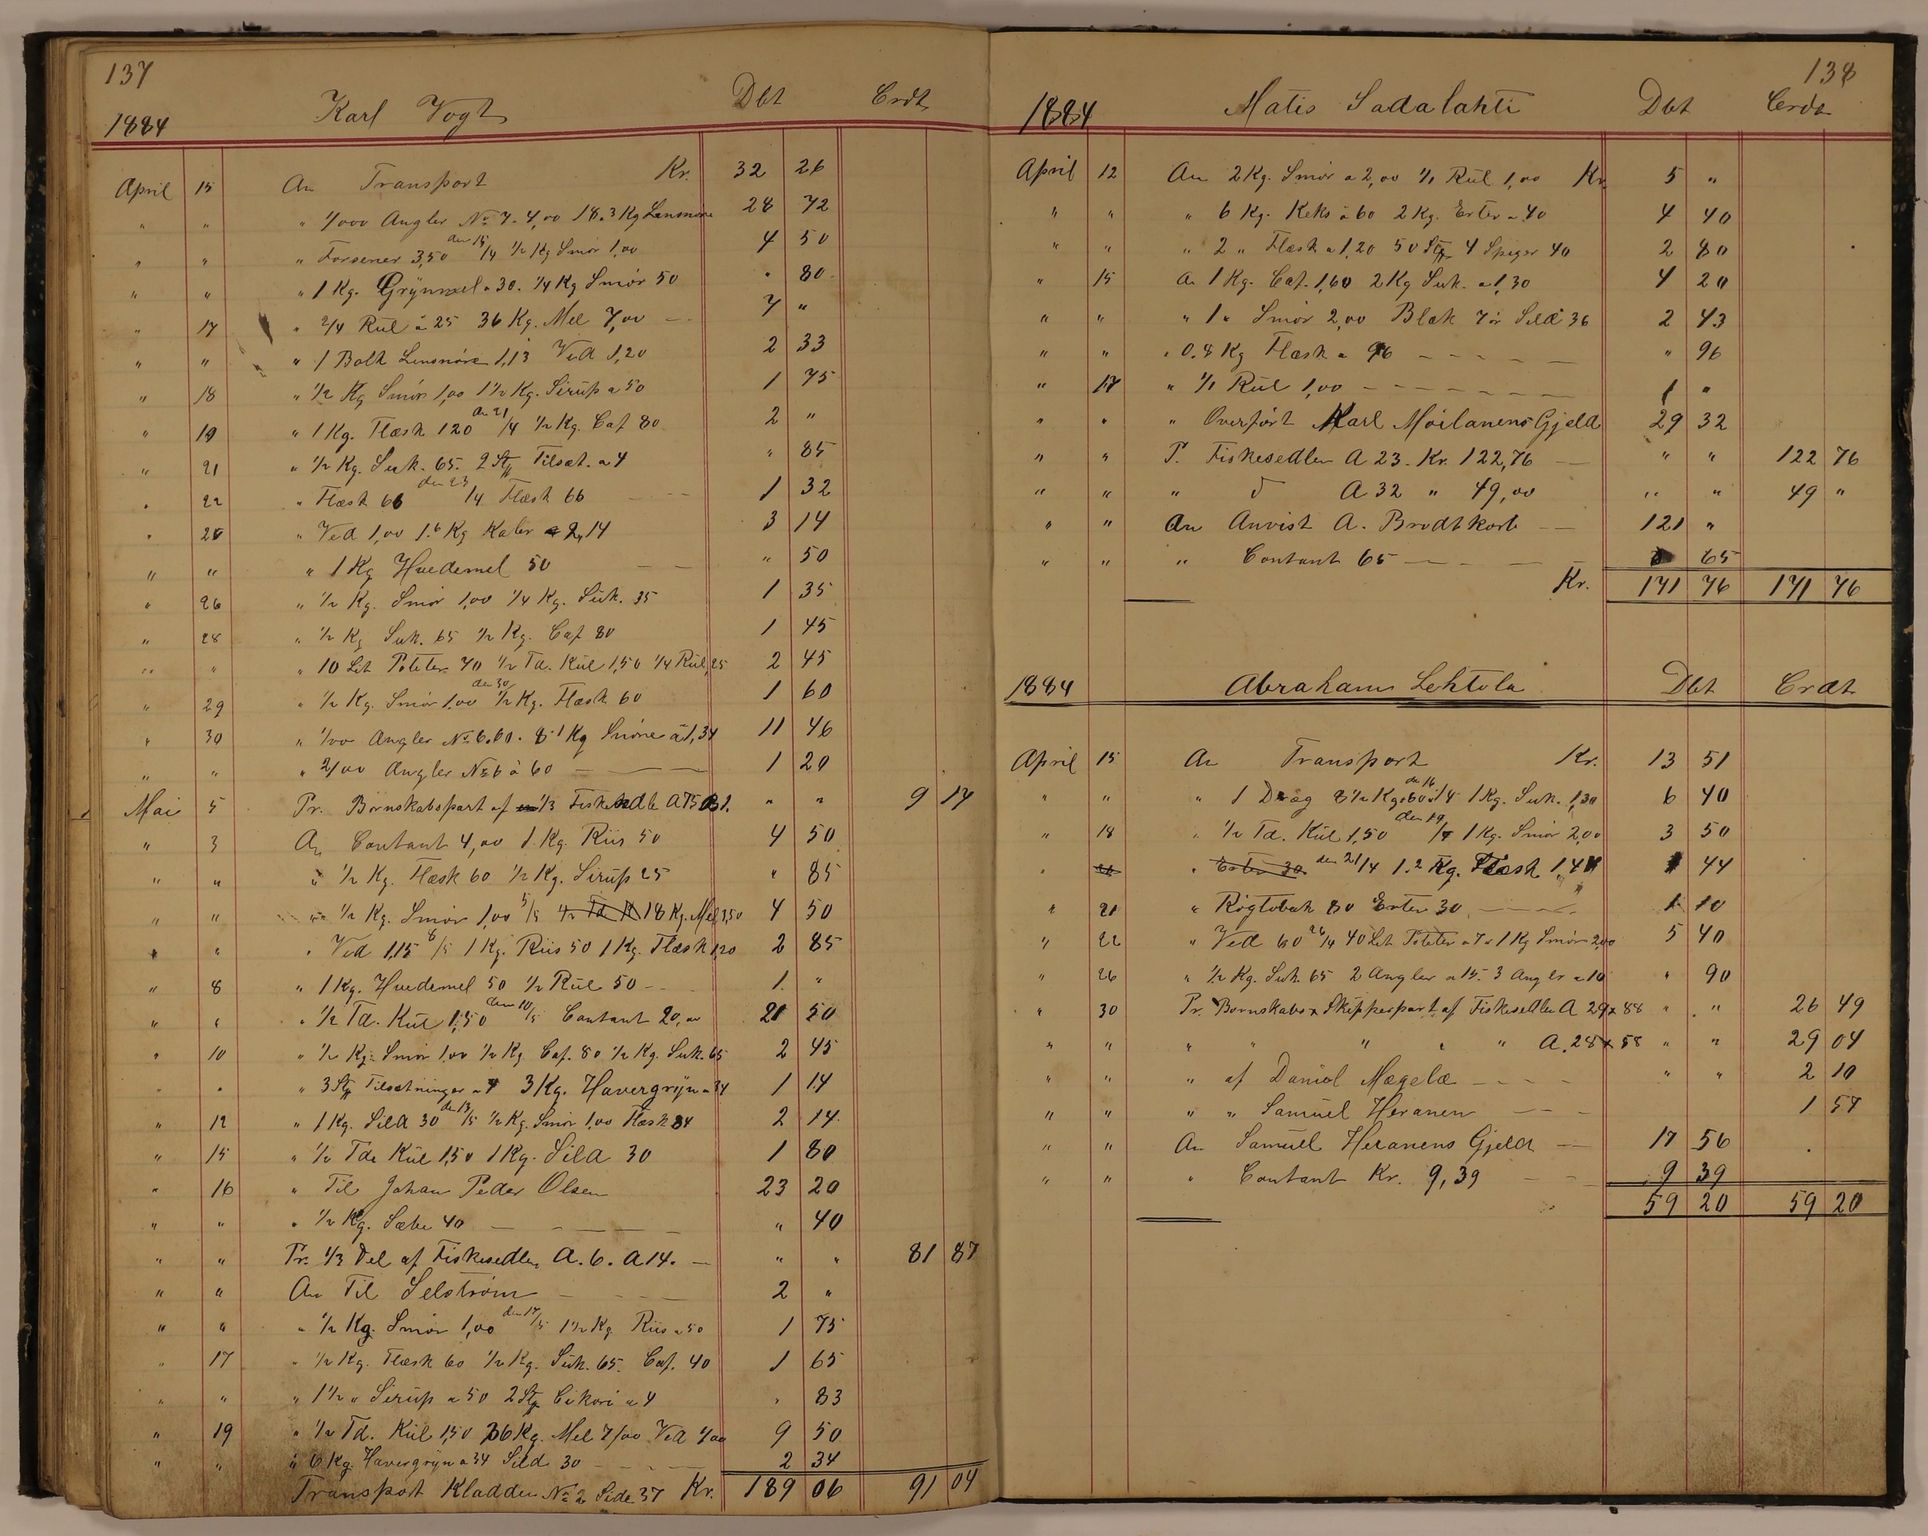 137
1884 Karl Vogt Dbt Crdt
April 15 An Transport Kr. 32 26
" " " 1/000 Angler No 7 - 4,00 18.3 Kg Linsnøre 28 72
" " " Forsener 3,50 den 15/4 1/2 Kg Smør 1,00 4 50
" " " 1 Kg. Grynmel a 30. 1/4 Kg Smør 50 " 80
" 17 " 2/4 Rul a 25 36 Kg. Mel 7,00 7 "
" " " 1 Bolt Linsnøre 1,13 Ved 1,20 2 33
" 18 " 1/2 Kg Smør 1,00 1 1/2 Kg. Sirup a 50 1 75
" 19 " 1 Kg. Flæsk 120 den 21/4 1/2 Kg. Caf 80 2 "
" 21 " 1/2 Kg. Suk. 65. 2 Stk Tilsæt. a 4 " 85
" 22 " Flæsk 66 den 23/4 Flæsk 66 1 32
" 25 " Ved 1,00 1.6 Kg 2,14 3 14
" " " 1 Kg Hvedemel 50 " 50
" 26 " 1/2 Kg. Smør 1,00 1/4 Kg. Suk. 35 1 35
" 28 " 1/2 Kg Suk. 65 1/2 Kg. Caf 80 1 45
" " " 10 Lit Poteter 70 1/2 Td. Kul 1,50 1/4 Rul, 25 2 45
" 29 " 1/2 Kg. Smør 1,00 den 30 1/2 Kg. Flæsk 60 1 60
" 30 " 1/00 Angler No 6. 60. 8.1 Kg Snøre a 1,34 11 46
" " " 2/00 Angler No 6 a 60 1 20
Mai 5 Pr. Bornskabspart af 1/3 Fiskesedle A 75 B 1. " " 9 17
" 3 An Contant 4,00 1 Kg. Riis 50 4 50
" " " 1/2 Kg. Flæsk 60 1/2 Kg. Sirup 25 " 85
" " " 1/2 Kg. Smør 1,00 5/5 1/2 Td K 18 Kg. Mel 3,50 4 50
" " " Ved 1,15 6/5 1 Kg. Riis 50 1 Kg. Flæsk 1,20 2 85
" 8 " 1 Kg. Hvedemel 50 1/2 Rul 50 1 "
" " " 1/2 Td. Kul 1,50 den 10/5 Contant 20,00 21 50
" 10 " 1/2 Kg. Smør 1,00 1/2 Kg Caf. 80 1/2 Kg. Suk. 65 2 45
" " " 3 Stk Tilsætninger a 4 3 Kg. Havergryn a 34 1 14
" 12 " 1 Kg. Sild 30 den 13/5 1/2 Kg. Smør 1,00 Flæsk 84 2 14
" 15 " 1/2 Tde Kul 1,50 1 Kg. Sild 30 1 80
" 16 " Til Johan Peder Olsen 23 20
" " " 1/2 Kg. Sæbe 40 " 40
" " Pr. 1/3 Del af Fiskesedlen A. 6. A 14. " " 81 87
" " An Til Selström 2 "
" " " 1/2 Kg. Smør 1,00 den 17/5 1 1/2 Kg. Riis a 50 1 75
" 17 " 1/2 Kg. Flæsk 60 1/2 Kg. Suk. 65. Caf. 40 1 65
" " " 1 1/2 " Sirup a 50 2 Stk Cikori a 4 " 83
" 19 " 1/2 Td. Kul 1,50 36 Kg. Mel 7/00 Ved 1/00 9 50
" " " 6 Kg. Havergryn a 34 Sild 30 2 34
Transport Kladden No 2 Side 37 Kr. 189 06 91 04
138
1884 Matis Sadalahti Dbt Crdt
April 12 An 2 Kg. Smør a 2,00 1/1 Rul 1,00 Kr. 5 "
" " " 6 Kg. Keks a 60 2 Kg. Erter a 40 4 40
" " " 2 " Flæsk a 1,20 50 Stk 4 Spiger 40 2 80
" 15 An 1 Kg. Caf. 1,60 2 Kg Suk. a 1,30 4 20
" " " 1 " Smør 2,00 Blæk 7 ør Sild 36 2 43
" " " 0.8 Kg Flæsk a 96 " 96
" 17 " 1/1 Rul 1,00 1 "
" " " Overført Karl Moilanens Gjeld 29 32
" " P. Fiskesedlen A 23. Kr. 122,76 " " 122 76
" " " A 32 " 49,00 " " 49 "
" " An Anvist A. Brodtkorb 121 "
" " " Contant 65 65
Kr. 171 76 171 76
1884 Abraham Lehtola Dbt Crdt
April 15 An Transport Kr. 13 51
" " " 1 Dræg 8 1/2 Kg. a 60 den 16/4 1 Kg. Suk. 1,30 6 40
" 18 " 1/2 Td. Kul 1,50 den 19/4 1 Kg. Smør 2,00 3 50
" 21 " Erter 30 den 21/4 1.2 Kg. Flæsk 1,44 1 44
" 21 " Røgtobak 80 Erter 30 1 10
" 22 " Ved 60 26/4 40 Lit Poteter a 7 1 Kg Smør 2,00 5 40
" 26 " 1/2 Kg. Suk 65 2 Angler a 15. 3 Angler a 10 " 90
" 30 Pr. Bornskabs & Skipperpart af Fiskesedlen A 29 x 88 " " 26 49
" " " " " " " A. 28 x 58 " " 29 04
" " " af Daniel Mægelæ " " 2 10
" " " " Samuel Heranen 1 57
" " An Samuel Heranens Gjeld 17 56
" " " Contant Kr. 9,39 9 39
59 20 59 20